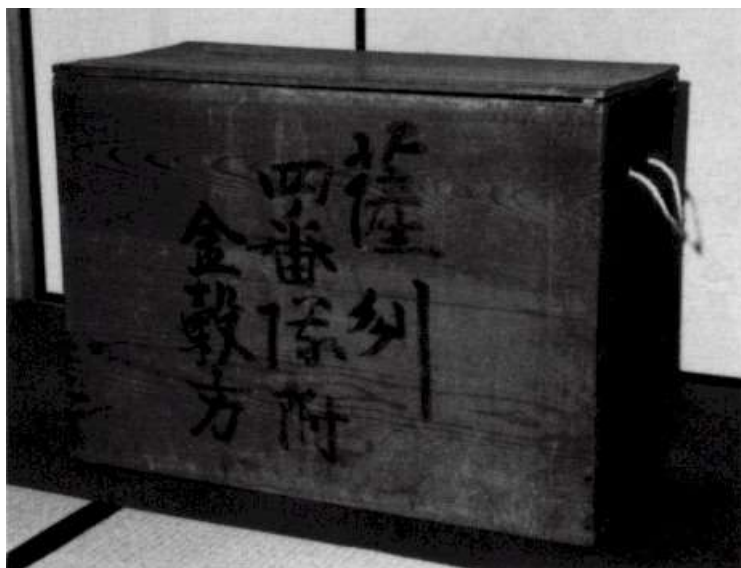 薩刕
四番隊附
金穀方